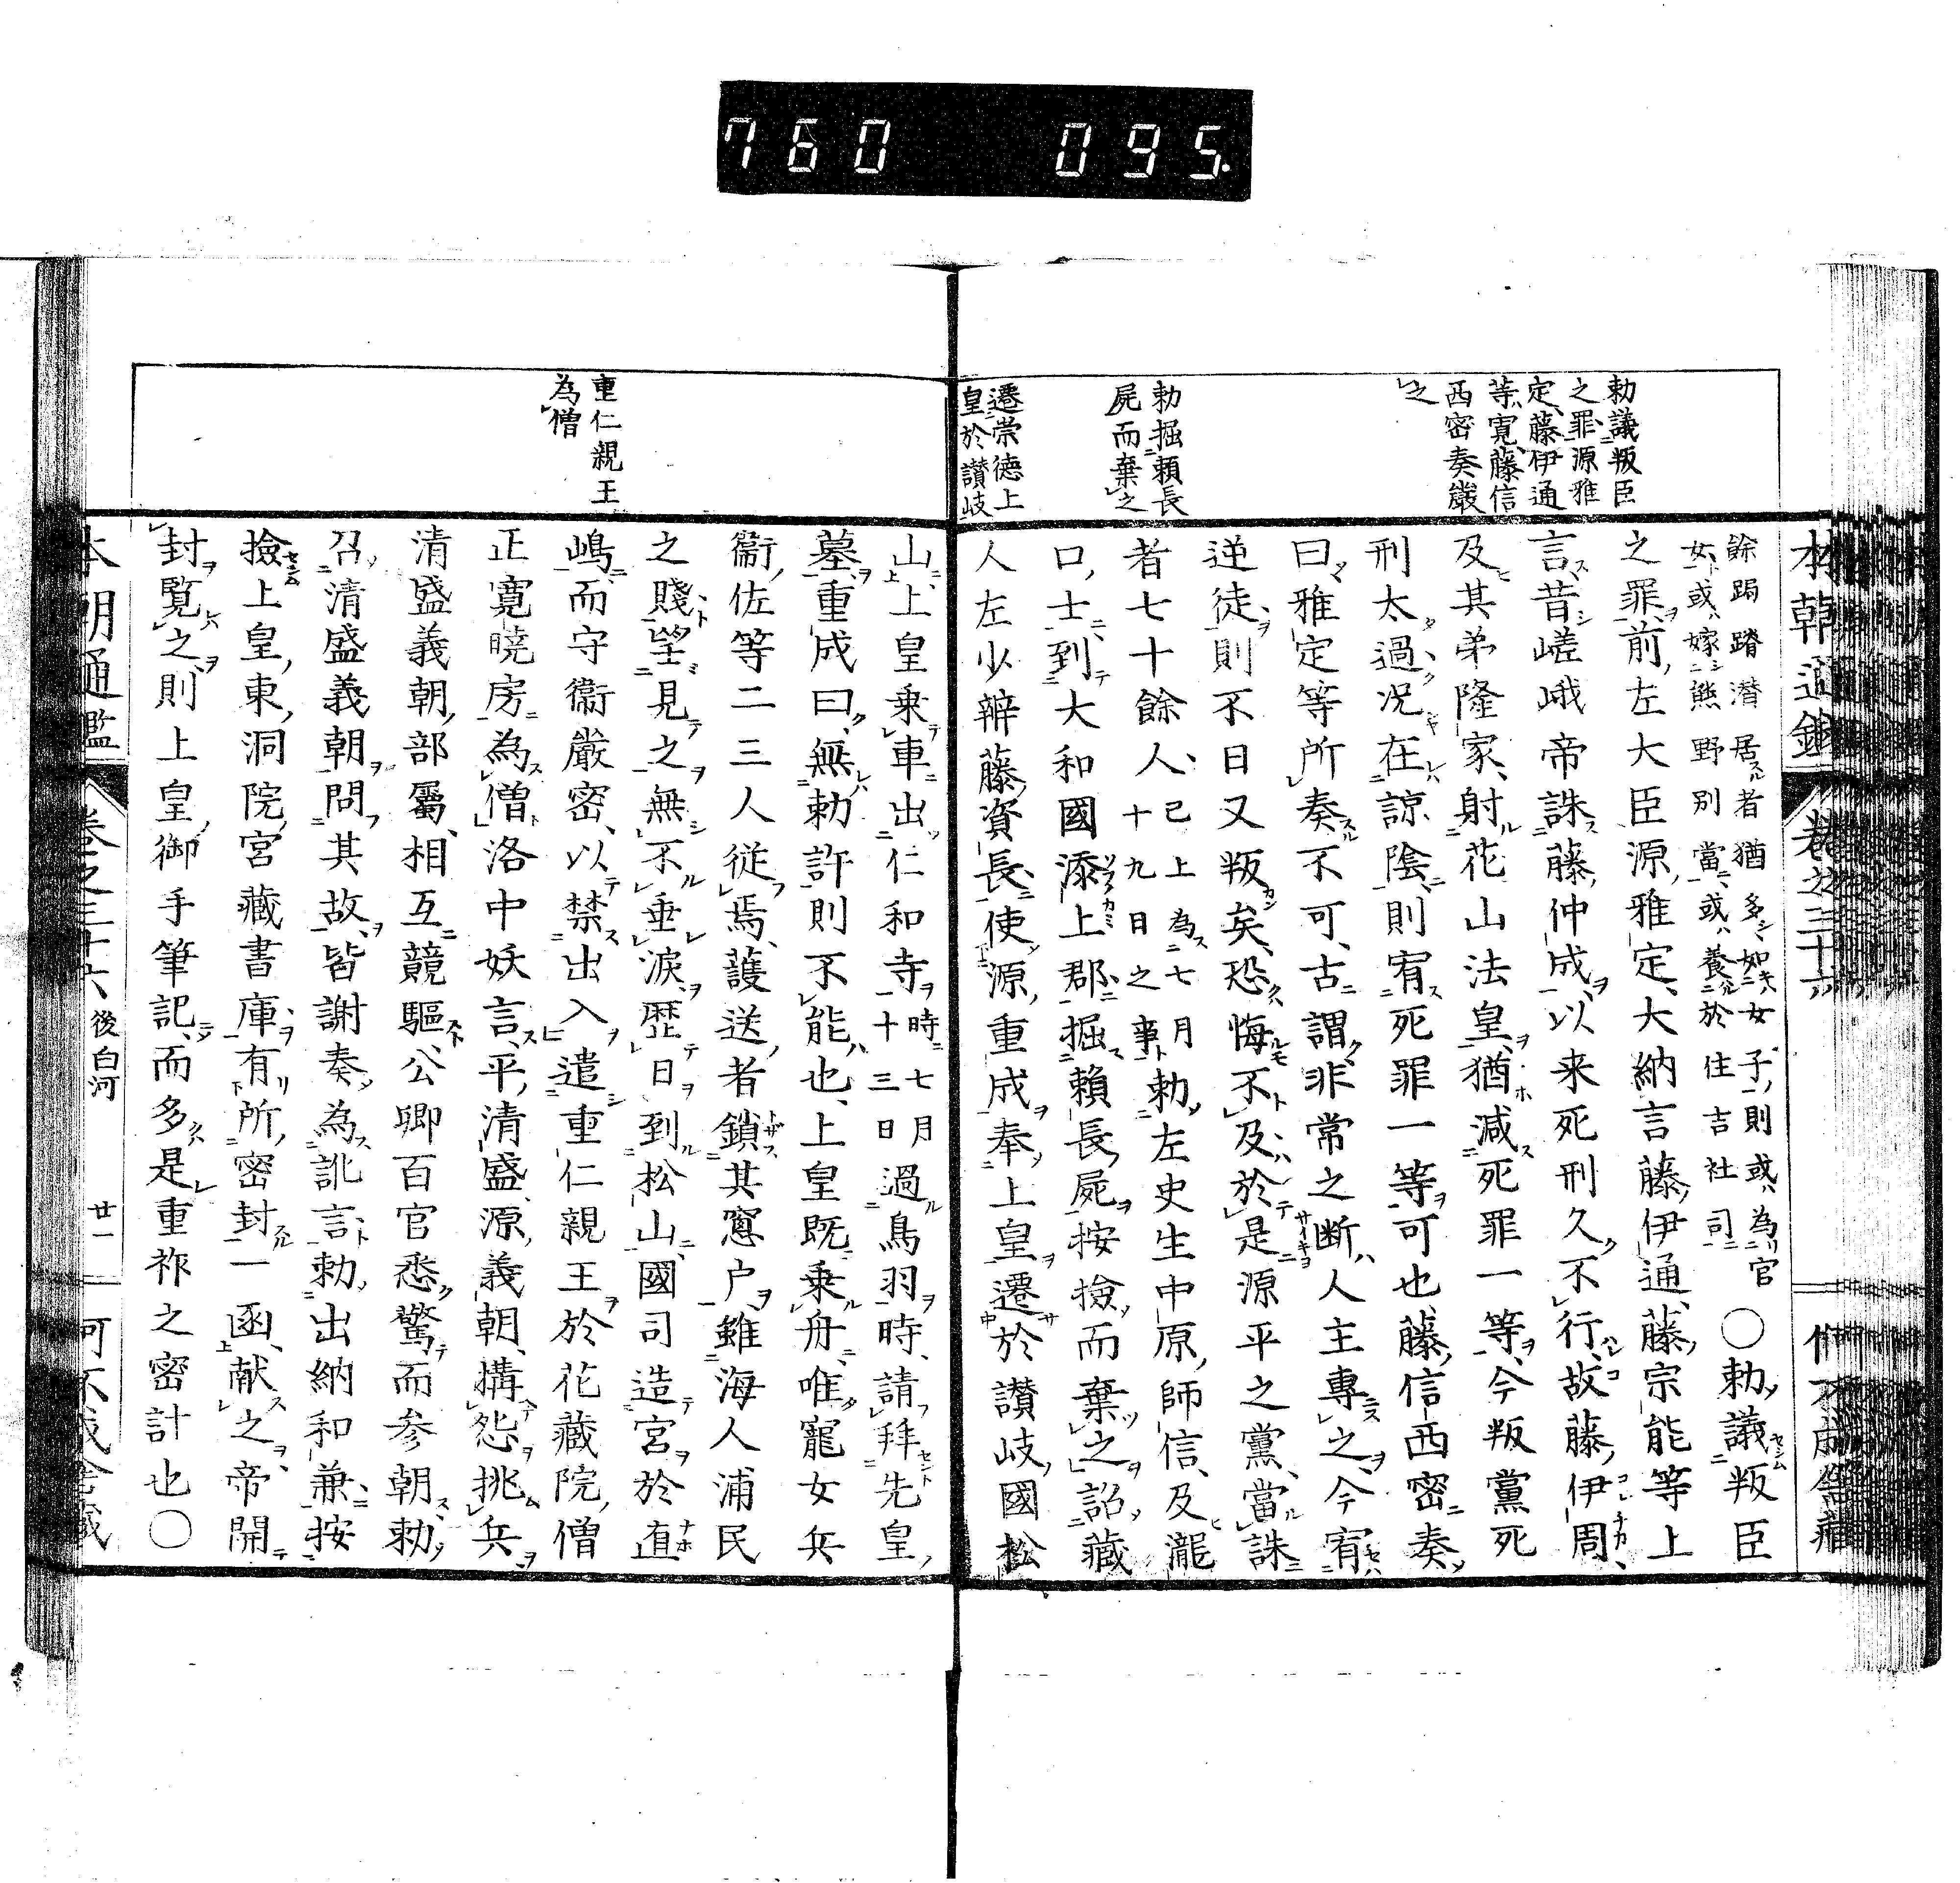 760 095.
勅議叛臣
之罪源雅
定藤伊通
等寛藤信
西密奏嚴
之
勅掘頼長
屍而棄之
遷崇徳上
皇於讃岐
餘跼蹐潜居者猶多如女子則或為官
女或嫁熊野別當或養於住吉社司
○勅議叛臣
之罪前左大臣源雅定大納言藤伊通藤宗能等上
言昔嵯峨帝誅藤仲成以来死刑久不行故藤伊周
及其弟隆家射花山法皇猶減死罪一等今叛黨死
刑太過况在諒陰則宥死罪一等可也藤信西密奏
曰雅定等所奏不可古謂非常之断人主專之今宥
逆徒則不日又叛矣恐悔不及於是源平之黨當誅
者七十餘人
已上為七月
十九日之事
勅左史生中原師信及瀧
口士到大和國添上郡掘頼長屍按撿而棄之詔藏
人左少辨藤資長使源重成奉上皇遷於讃岐國松
重仁親王
為僧
山上皇乗車出仁和寺
時七月
十三日
過鳥羽時請拜先皇
墓重成曰無勅許則不能也上皇既乗舟唯寵女兵
衞佐等二三人従焉護送者鎖其窓户雖海人浦民
之賤望見之無不垂涙歴日到松山國司造宮於直
嶋而守衞嚴密以禁出入遣重仁親王於花藏院僧
正寛曉房為僧洛中妖言平清盛源義朝搆怨挑兵
清盛義朝部屬相互競驅公卿百官悉驚而参朝勅
召清盛義朝問其故皆謝奏為訛言勅出納和兼按
撿上皇東洞院宮藏書庫有所密封一函献之帝開
封覧之則上皇御手筆記而多是重祚之密計也○
本朝通鑑 卷之三十六 後白河 廿一